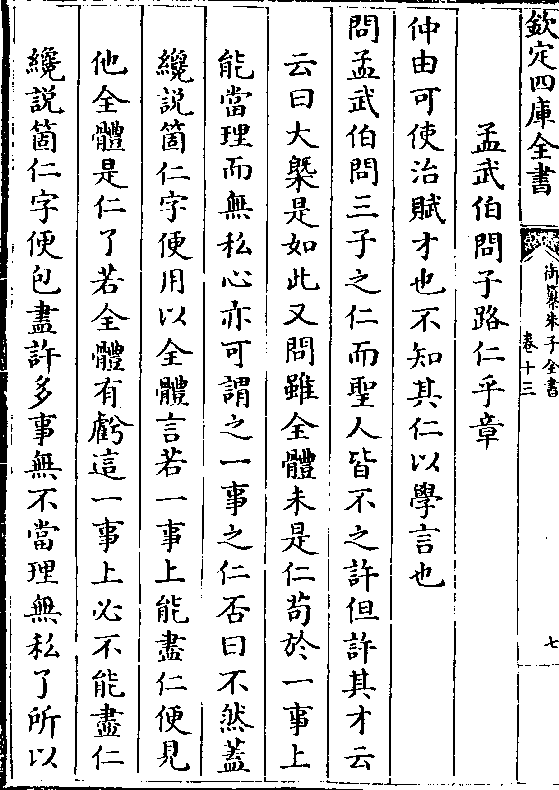 欽定四庫全書
御纂朱子全書
卷十三
七
孟武伯問子路仁乎章
仲由可使治賦才也不知其仁以學言也
問孟武伯問三子之仁而聖人皆不之許但許其才云
云曰大槩是如此又問雖全體未是仁苟於一事上
能當理而無私心亦可謂之一事之仁否曰不然蓋
纔說箇仁字便用以全體言若一事上能盡仁便見
他全體是仁了若全體有虧這一事上必不能盡仁
纔說箇仁字便包盡許多事無不當理無私了所以